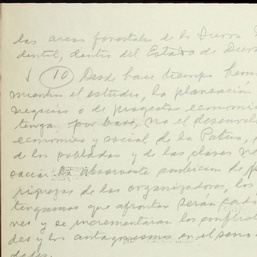 las areas forestales de la Sierra
dental, dentro del Estado de
(10) Desde hace tiempo hemos
mientras el estudio, la planeación
negocios o de proyectos economic
tenga por base, no el desenvol
economico y social de la Patria,
de los poblados y de las clases
sino la absorbente ambicion de
de las organizadoras, los
tenguemos que afrontar seran cada
ves y se incrementaran los conflic
des y los antagonismos en el seno
dades.